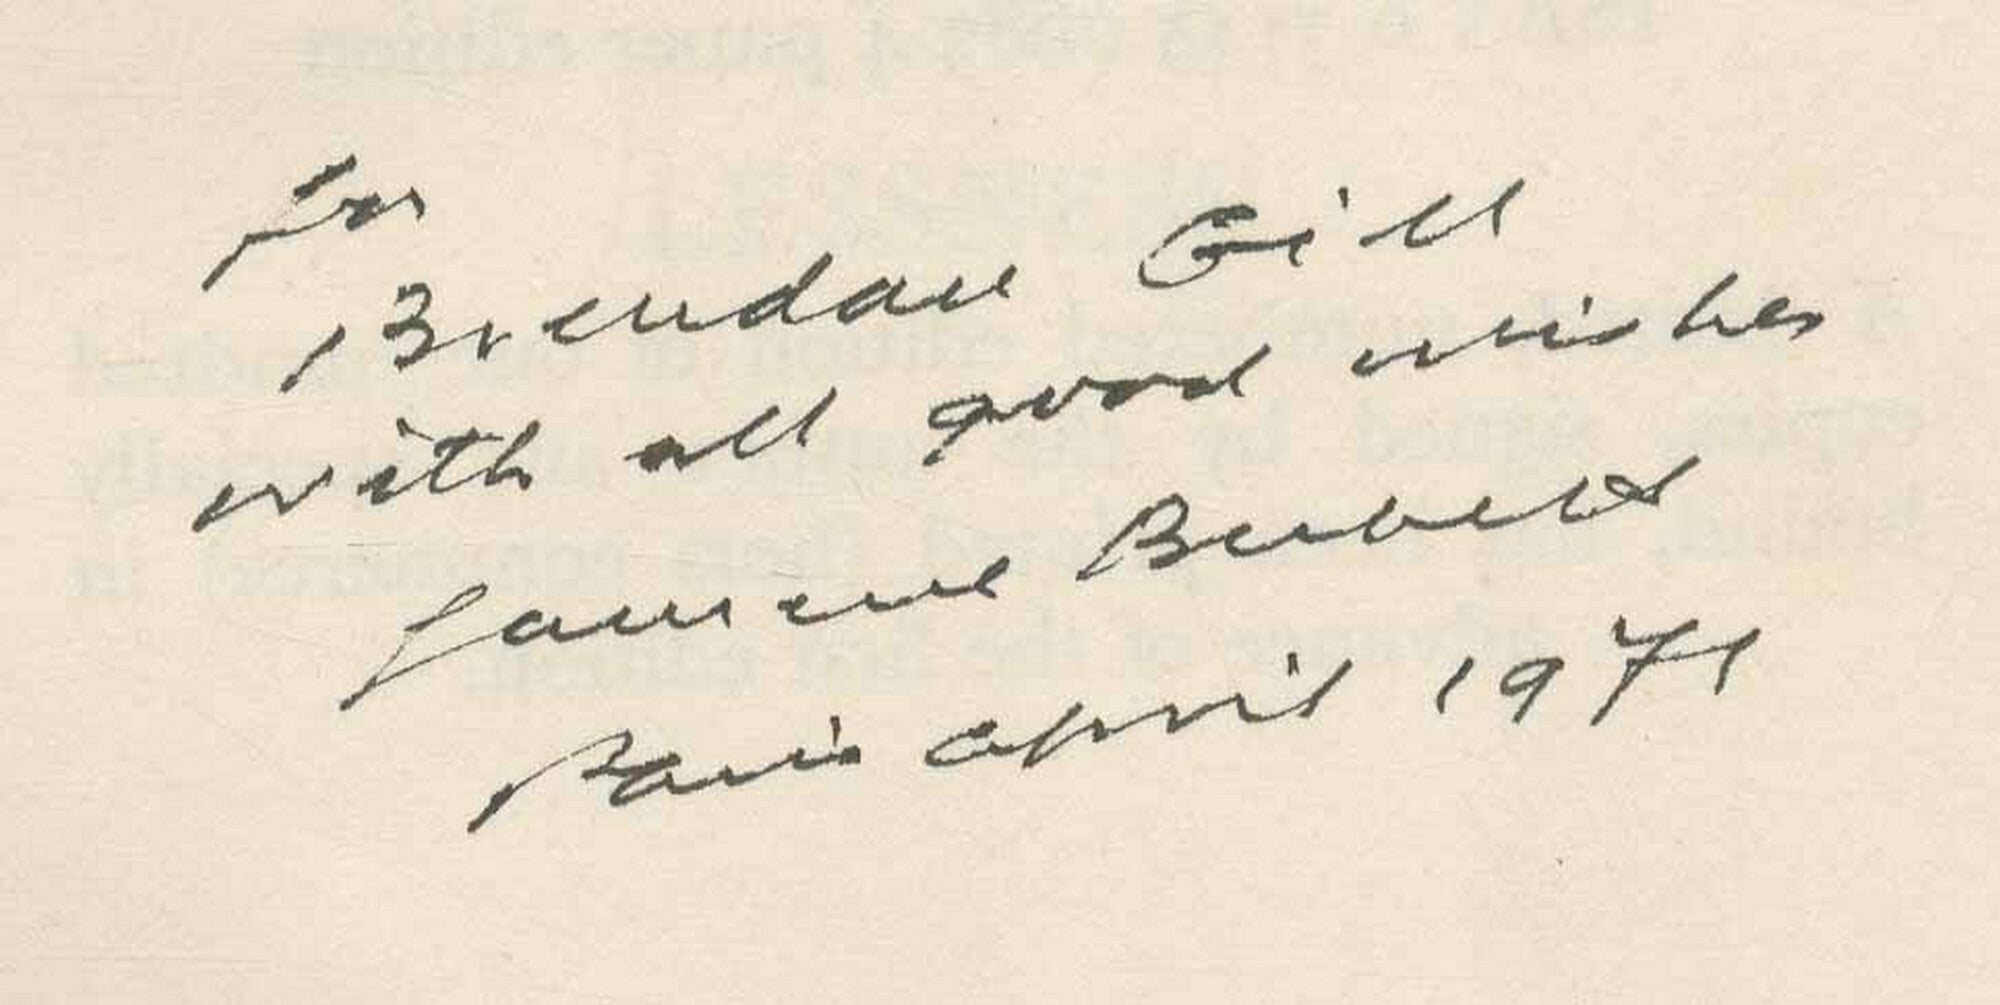 for
Brendan Gill
with all good wishes
Samuel Beckett
Paris April 1971